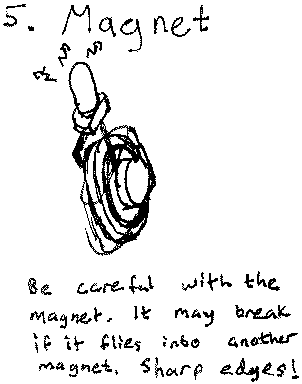 5. Magnet
Be careful with the
magnet. It may break
if it flies into another
magnet. Sharp edges!